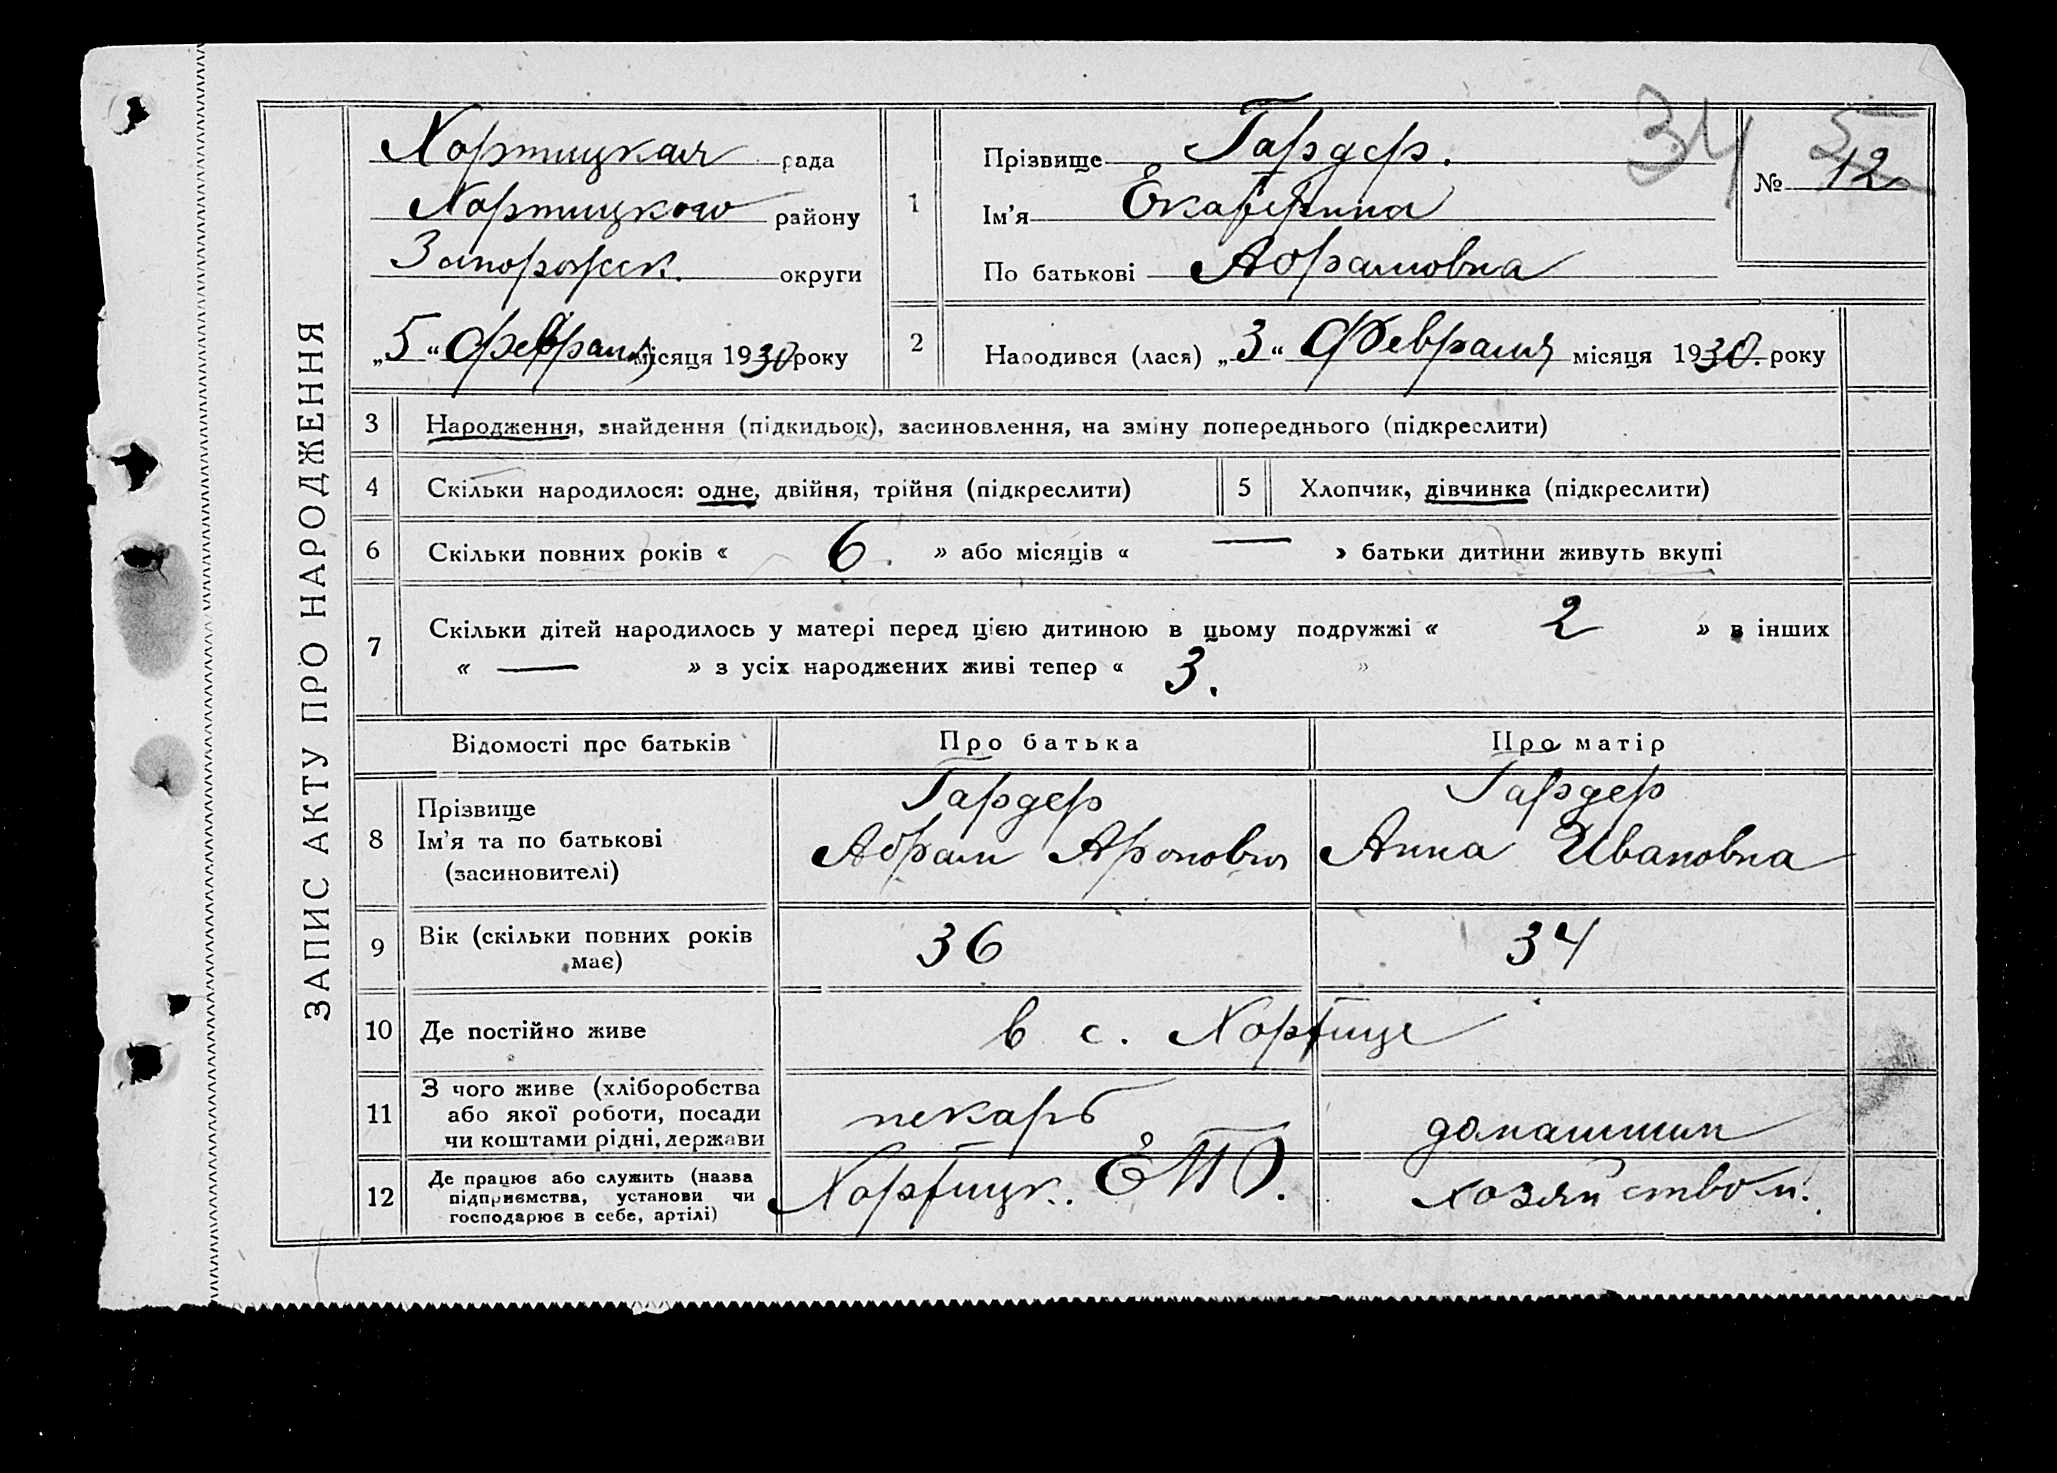 ЗАПИС АКТУ ПРО НАРОДЖЕННЯ
Хортицкая рада
Хортицкого району
Запорожск. округи
„5“ февраля місяця 1930 року
1
Прізвище Гардер.
Ім'я Екатерина
По батькові Абрамовна
34 5
№ 12
2 Народився (лася) „3“ Февраля місяця 1930. року
3 Народження, знайдення (підкидьок), засиновлення, на зміну попереднього (підкреслити)
4 Скільки народилося: одне, двійня, трійня (підкреслити) 5 Хлопчик, дівчинка (підкреслити)
6 Скільки повних років « 6 » або місяців « — » батьки дитини живуть вкупі
7 Скільки дітей народилось у матері перед цією дитиною в цьому подружжі « 2 » в інших
« — » з усіх народжених живі тепер « 3. »
Відомості про батьків Про батька Про матір
8 Прізвище Гардер Гардер
Ім'я та по батькові Абрам Аронович Анна Ивановна
(засиновителі)
9 Вік (скільки повних років має) 36 34
10 Де постійно живе в с. Хортице
11 З чого живе (хліборобства
або якої роботи, посади пекарь домашним
чи коштами рідні, держави
12 Де працює або служить (назва
підприємства, установи чи Хортицк. ЕПО. хозяйством.
господарює в себе, артілі)